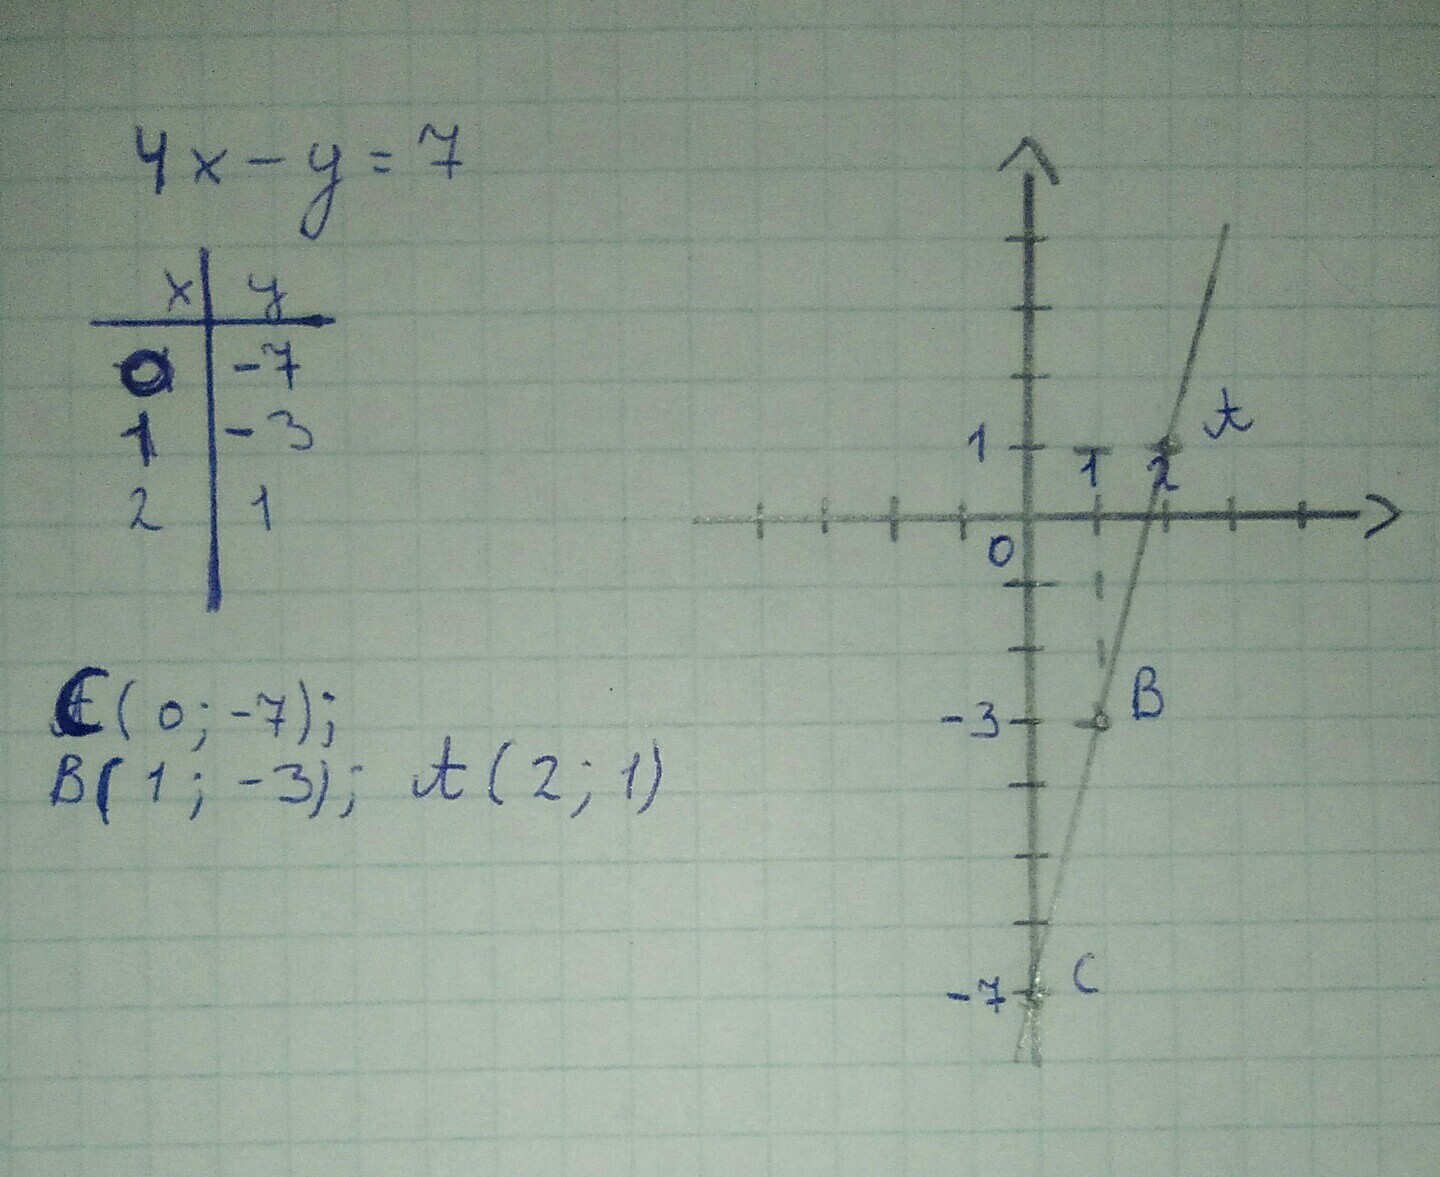 4x - y = 7
x y
0 -7
1 -3
2 1
C(0; -7);
B(1; -3); A(2; 1)
A
1 1 2
0
B
-3
C
-7